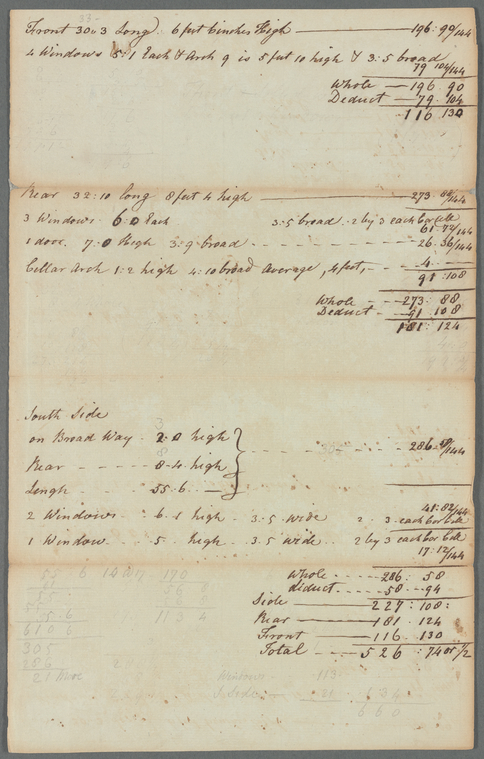 Front 30..3 Long. 6 feet 6 inches High — 196:90/144
4 Windows 5:1 Each & Arch 9 is 5 feet 10 high & 3:5 broad
79 104/144
Whole — 196 90
Deduct — 79 104
116 130
Rear 32:10 long 8 feet 4 high — 273 88/144
3 Windows. 6 0 Each 3:5 broad 2 by 3 each
61:72/144
1 door. 7:0 High 3:9 broad - - - - 26:36/144
Cellar Arch 1:2 high 4:10 broad Average, 4 feet, - - 4 —
91:108
Whole - - 273: 88
Deduct - - 91 108
181: 124
South Side
on Broad Way - 2:0 high
Rear - - - - 8-4 high - - - - 286 58/144
Length - - - 55:6 —
41:82/144
2 Windows - 6 1 high - 3:5 wide 2 3 each
1 Window - 5 high - 3.5 wide - 2 by 3 each
17:12/144
Whole - - - 286: 58
deduct - - - 58 - 94
Side — 227: 108:
Rear — 181 124
Front — 116. 130
Total — 526 :74 or 1/2
55. 6 170
55
55
75.6 113 4
6106
305
286
21
Windows 113
S. Side 21 134
660